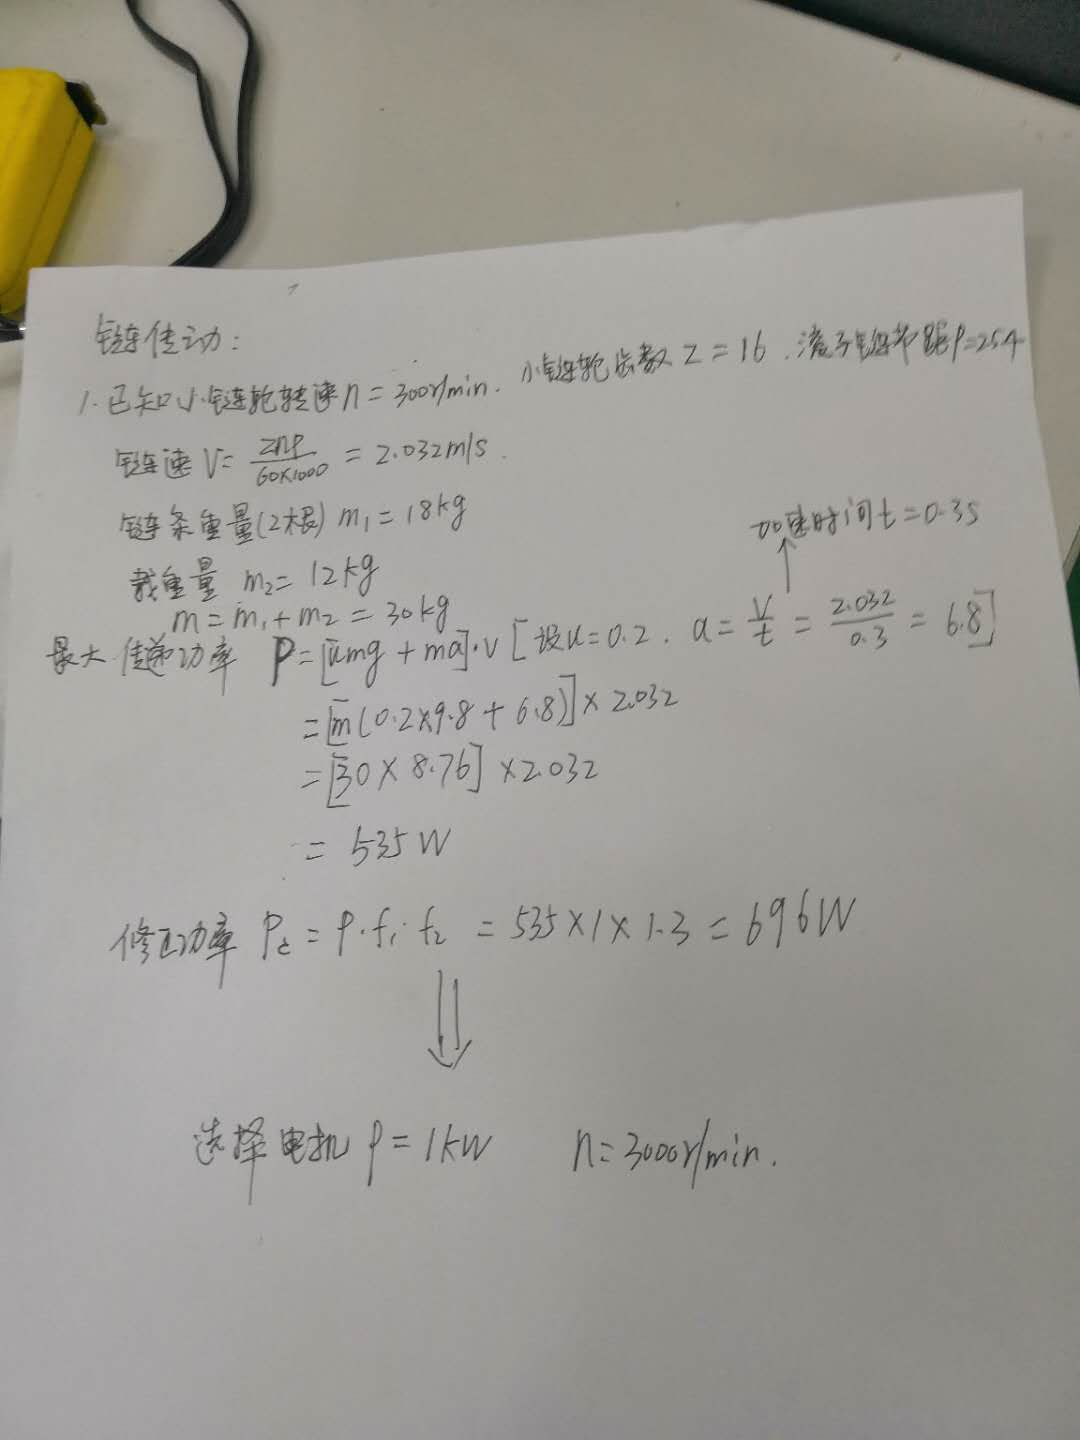 链传动：
1.已知小链轮转速n=300r/min. 小链轮齿数Z=16.滚子链节距P=25.4
链速V=ZnP/60×1000=2.032m/s.
链条重量(2根) m₁=18kg
加速时间t=0.3s
载重量 m₂=12kg
m=m₁+m₂=30kg
最大传递功率 P=[umg+ma]·v [设u=0.2. a=V/t=2.032/0.3=6.8]
=[m(0.2×9.8+6.8)]×2.032
=[30×8.76]×2.032
=535W
修正功率 Pc=P·f₁·f₂=535×1×1.3=696W
选择电机P=1kW n=3000r/min.